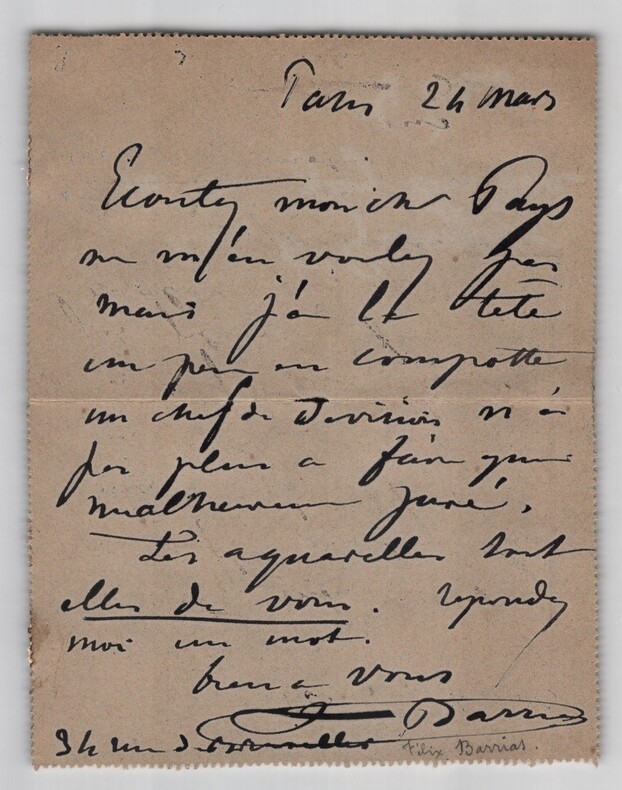 Paris 24 mars
Ecoutez mon cher Pays
ne m'en voulez pas
mais j'ai la tête
un peu en compotte
un chef de Division n'a
pas plus a faire qu'un
malheureux juré.
Les aquarelles sont
elles de vous. repondez
moi un mot.
bien a vous
F Barrias
34 rue de Bruxelles
Félix Barrias.